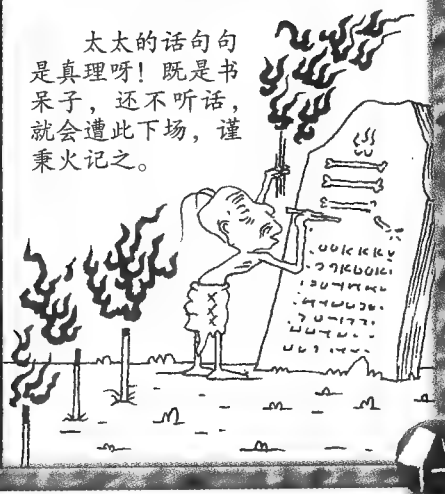 太太的话句句
是真理呀！既是书
呆子，还不听话，
就会遭此下场，谨
秉火记之。